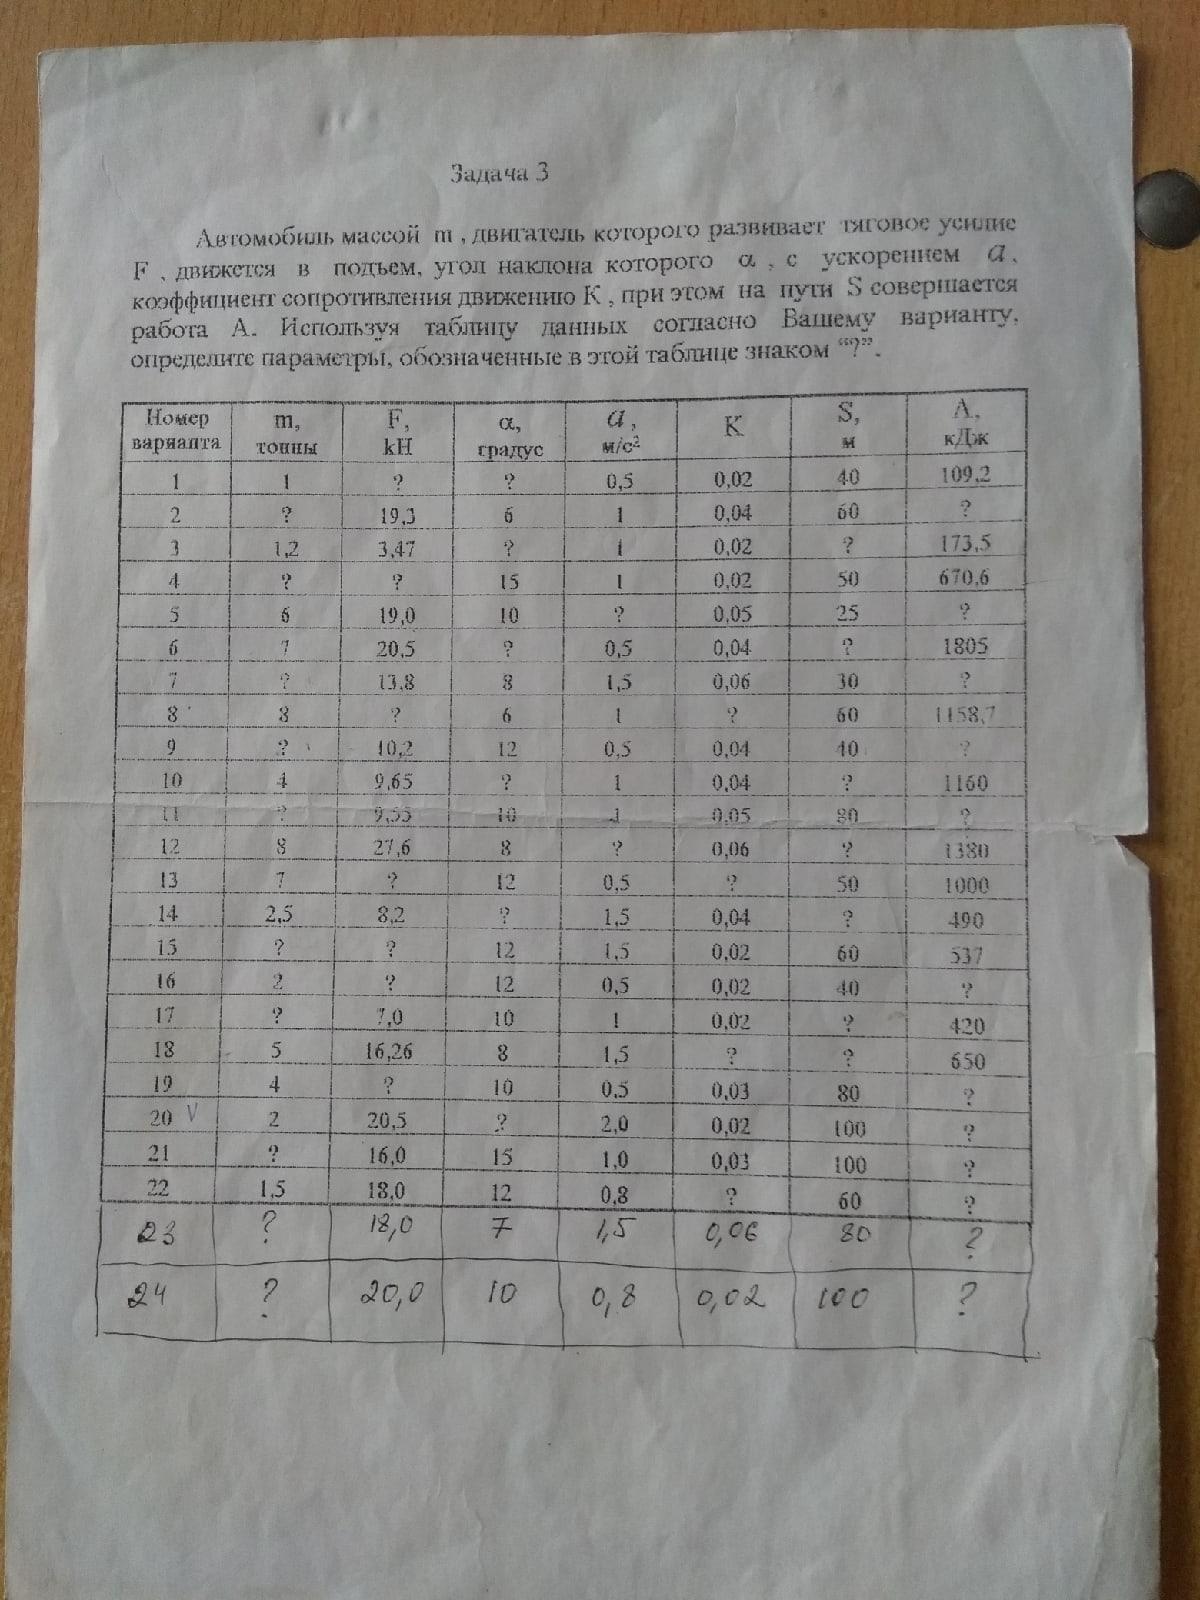 Задача 3
Автомобиль массой m , двигатель которого развивает тяговое усилие
F , движется в подъем, угол наклона которого α , с ускорением a ,
коэффициент сопротивления движению К , при этом на пути S совершается
работа А. Используя таблицу данных согласно Вашему варианту,
определите параметры, обозначенные в этой таблице знаком “?”.
Номер варианта m, тонны F, kH α, градус a, м/с² К S, м А, кДж
1 1 ? ? 0,5 0,02 40 109,2
2 ? 19,3 6 1 0,04 60 ?
3 1,2 3,47 ? 1 0,02 ? 173,5
4 ? ? 15 1 0,02 50 670,6
5 6 19,0 10 ? 0,05 25 ?
6 7 20,5 ? 0,5 0,04 ? 1805
7 ? 13,8 8 1,5 0,06 30 ?
8 8 ? 6 1 ? 60 1158,7
9 ? 10,2 12 0,5 0,04 40 ?
10 4 9,65 ? 1 0,04 ? 1160
11 ? 9,55 10 1 0,05 80 ?
12 8 27,6 8 ? 0,06 ? 1380
13 7 ? 12 0,5 ? 50 1000
14 2,5 8,2 ? 1,5 0,04 ? 490
15 ? ? 12 1,5 0,02 60 537
16 2 ? 12 0,5 0,02 40 ?
17 ? 7,0 10 1 0,02 ? 420
18 5 16,26 8 1,5 ? ? 650
19 4 ? 10 0,5 0,03 80 ?
20 V 2 20,5 ? 2,0 0,02 100 ?
21 ? 16,0 15 1,0 0,03 100 ?
22 1,5 18,0 12 0,8 ? 60 ?
23 ? 18,0 7 1,5 0,06 80 ?
24 ? 20,0 10 0,8 0,02 100 ?